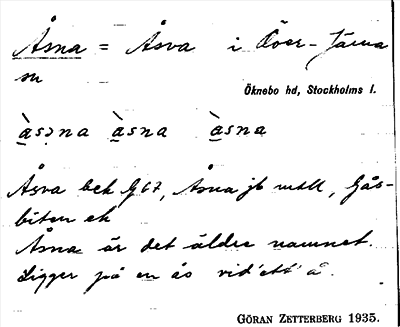 Åsna = Åsva i Över-Järna
sn
Öknebo hd, Stockholms l.
àsɔna àsna àsna
Åsva bek G67, Åsna jb mtll, Gås-
biten ek
Åsna är det äldre namnet.
Ligger på en ås vid ett å.
GÖRAN ZETTERBERG 1935.